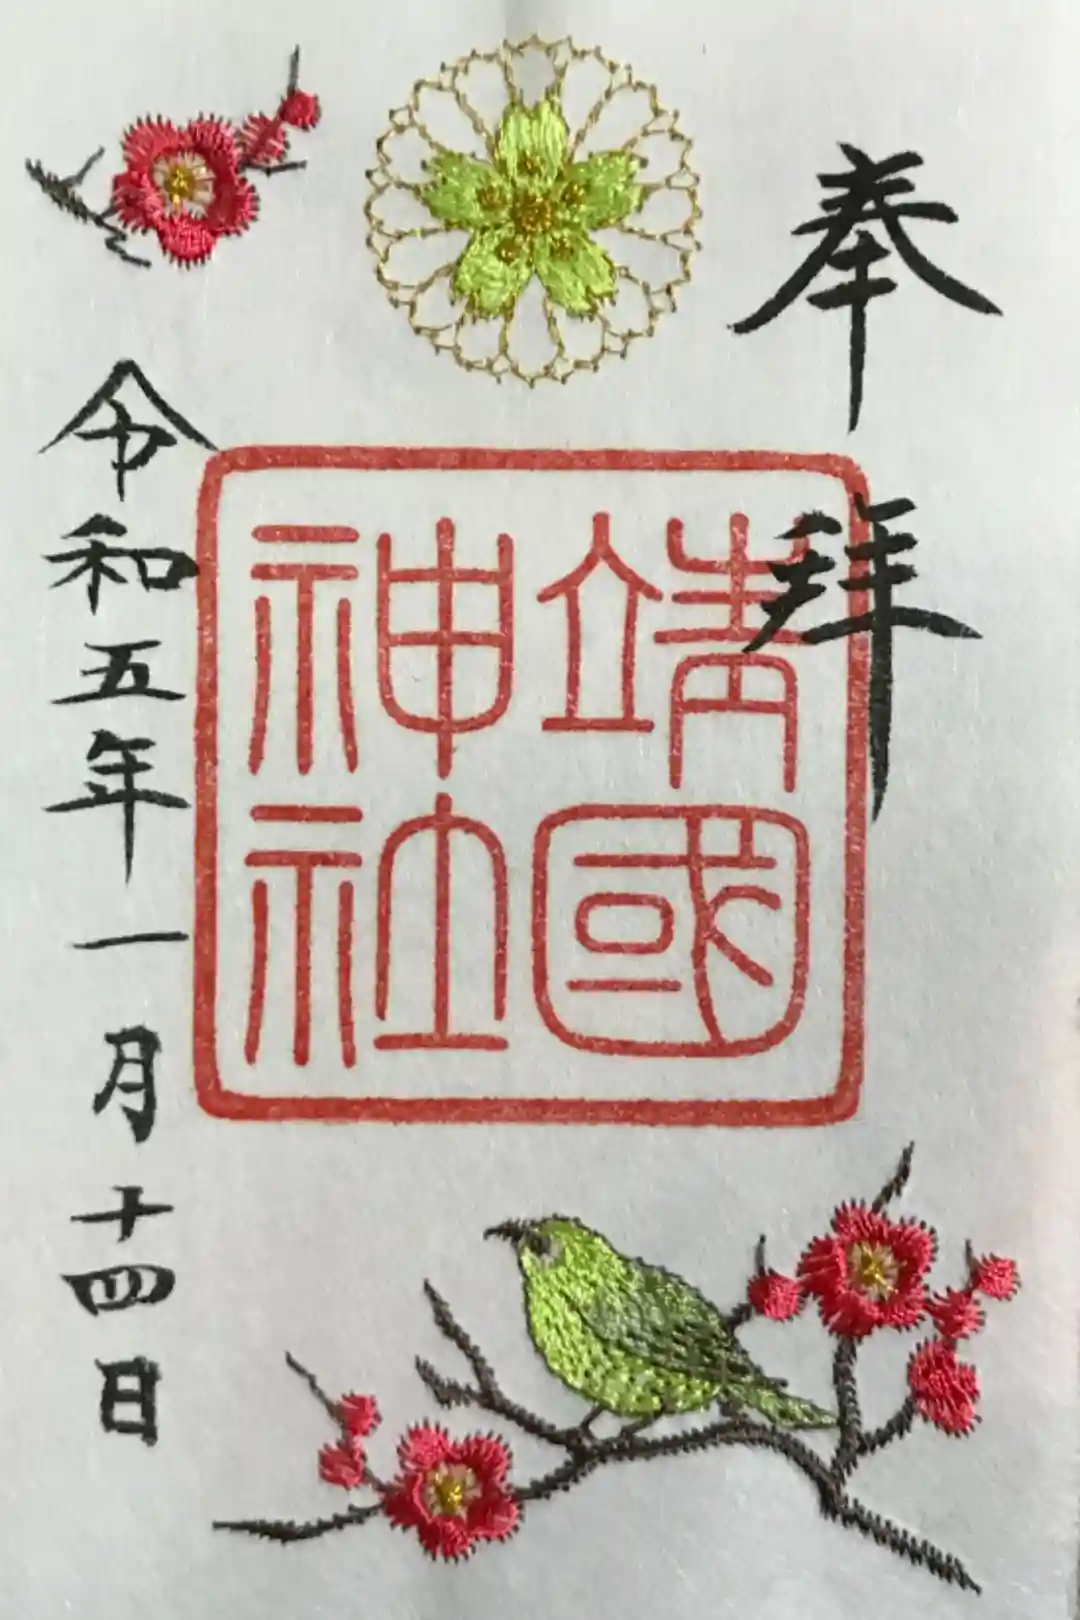 奉拝
靖國
神社
令和五年一月十四日